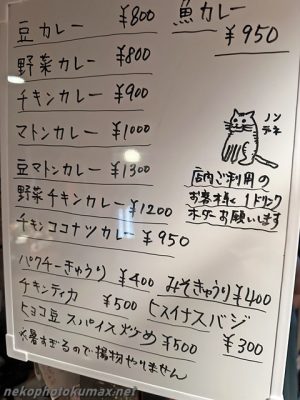 豆カレー ¥800
野菜カレー ¥800
チキンカレー ¥900
マトンカレー ¥1000
豆マトンカレー ¥1300
野菜チキンカレー ¥1200
チキンココナツカレー ¥950
魚カレー
¥950
店内ご利用の
お客様、1ドリンク
オーダーお願いします
パクチーきゅうり ¥400
みそきゅうり ¥400
チキンティカ ¥500
ビスイナスバジ
¥300
ヒヨコ豆スパイス炒め ¥500
※暑すぎるので揚物やりません
nekophotokumax.net
nekophotokumax.net